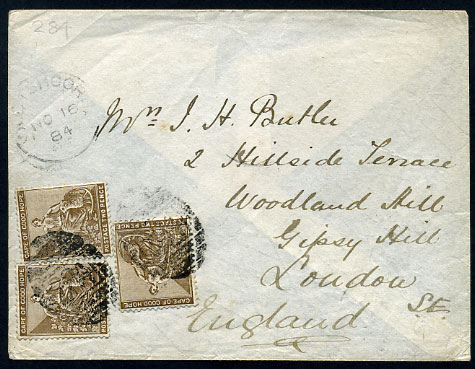 284
NO 16
84
Mrs J. H. Butler
2 Hillside Terrace
Woodland Hill
Gipsy Hill
London
S.E.
England
POSTAGE TWO PENCE
CAPE OF GOOD HOPE
CAPE OF GOOD HOPE
POSTAGE TWO PENCE
CAPE OF GOOD HOPE